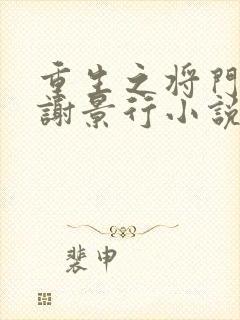 重生之将門
謝景行小説
裴申